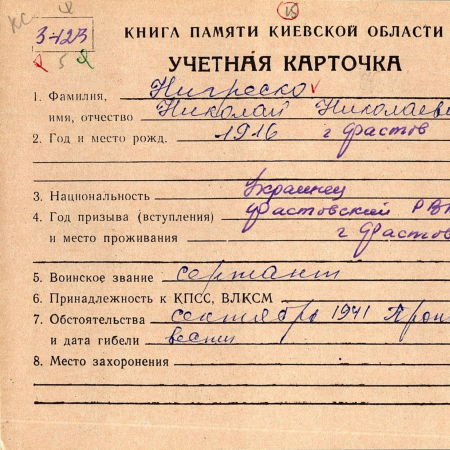 КС
К
3-123
КНИГА ПАМЯТИ КИЕВСКОЙ ОБЛАСТИ
УЧЕТНАЯ КАРТОЧКА
1. Фамилия, Нигреско
имя, отчество Николай Николаеви
2. Год и место рожд. 1916 г Фастов
3. Национальность Украинец
4. Год призыва (вступления) Фастовский РВК
и место проживания г Фастов
5. Воинское звание сержант
6. Принадлежность к КПСС, ВЛКСМ
7. Обстоятельства сентябрь 1941 Проп
и дата гибели вести
8. Место захоронения